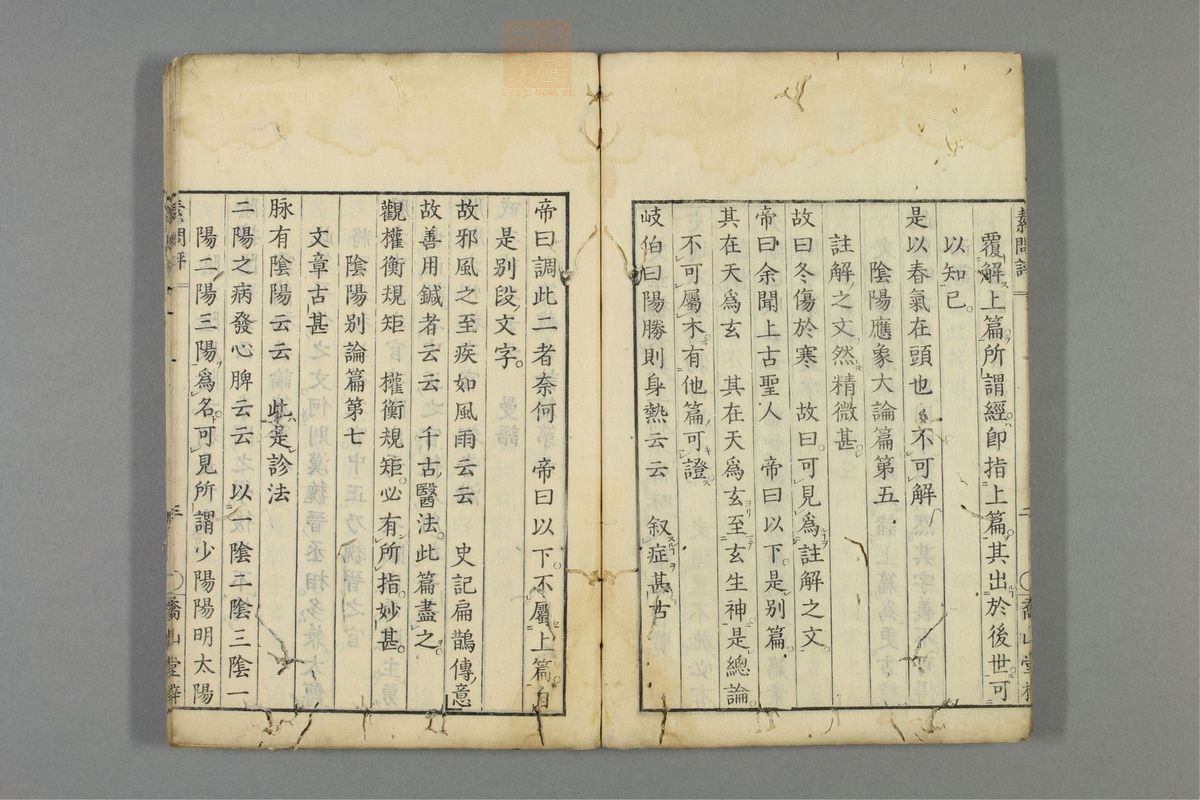 素問評
覆解上篇所謂經即指上篇其出於後世可
以知已
是以春氣在頭也 不可解
陰陽應象大論篇第五
註解之文然精微甚
故曰冬傷於寒 故曰可見爲註解之文
帝曰余聞上古聖人 帝曰以下是別篇
其在天爲玄 其在天爲玄至玄生神是總論
不可屬木有他篇可證
岐伯曰陽勝則身熱云云 叙症甚古
帝曰調此二者奈何 帝曰以下不屬上篇自
是別段文字
故邪風之至疾如風雨云云 史記扁鵲傳意
故善用鍼者云云 千古醫法此篇盡之
觀權衡規矩 權衡規矩必有所指妙甚
陰陽別論篇第七
文章古甚
脉有陰陽云云 此是診法
二陽之病發心脾云云 以一陰二陰三陰一
陽二陽三陽爲名可見所謂少陽陽明太陽
素問評